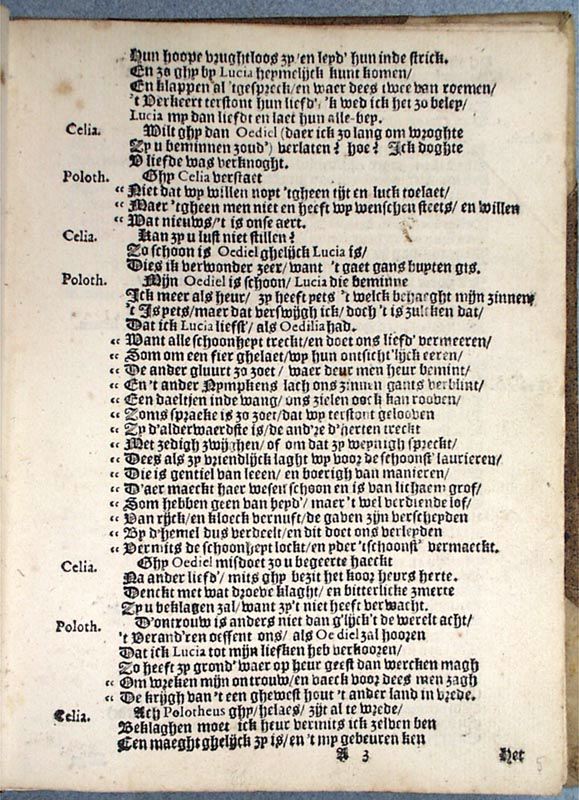 Hun hoope vrughtloos zy/en leyd' hun inde strick.
En zo ghy by Lucia heymelijck kunt komen/
En klappen al 'tgespreck/en waer dees twee van roemen/
't Verkeert terstont hun liefd'/ 'k wed ick het zo beley/
Lucia my dan liefdt en laet hun alle-bey.
Celia. Wilt ghy dan Oediel (daer ick zo lang om wroghte
Zy u beminnen zoud') verlaten? hoe? Ick doghte
V liefde was verknoght.
Poloth. Ghy Celia verstaet
“ Niet dat wy willen noyt 'tgheen tijt en luck toelaet/
“ Maer 'tgheen men niet en heeft wy wenschen steets/ en willen
“ Wat nieuws/'t is onse aert.
Celia. Kan zy u lust niet stillen?
Zo schoon is Oediel ghelijck Lucia is/
Dies ik verwonder zeer/ want 't gaet gans buyten gis.
Poloth. Mijn Oediel is schoon/ Lucia die beminne
Ick meer als heur/ zy heeft yets 't welck behaeght mijn zinnen
't Is yets/maer dat verswijgh ick/ doch 't is zulcken dat/
Dat ick Lucia liefst'/ als Oedilia had.
“ Want alle schoonheyt treckt/en doet ons liefd' vermeeren/
“ Som om een fier ghelaet/wy hun ontsicht'lijck eeren/
“ De ander gluurt zo zoet/ waer deur men heur bemint/
“ En't ander Nympkens lach ons zinnen gants verblint/
“ Een daeltjen inde wang/ ons zielen oock kan rooven/
“ Zoms spraeke is zo zoet/dat wy terstont gelooven
“ Zy d'alderwaerdste is/de and're d'herten treckt
“ Met zedigh zwijghen/ of om dat zy weynigh spreckt/
“ Dees als zy vriendlijck laght wy voor de schoonst' laurieren/
“ Die is gentiel van leeen/ en boerigh van manieren/
“ D'aer maeckt haer wesen schoon en is van lichaem grof/
“ Som hebben geen van beyd'/ maer 't wel verdiende lof/
“ Van rijck/en kloeck vernuft/de gaven zijn verscheyden
“ By d'hemel dus verdeelt/en dit doet ons verleyden
“ Vermits de schoonheyt lockt/en yder 'tschoonst' vermaeckt.
Celia. Ghy Oediel misdoet zo u begeerte haeckt
Na ander liefd'/ mits ghy bezit het koor heurs herte.
Denckt met wat droeve klaght/ en bitterlicke zmerte
Zy u beklagen zal/ want zy't niet heeft verwacht.
Poloth. D'ontrouw is anders niet dan g'lijck't de werelt acht/
't Verand'ren oeffent ons/ als Oediel zal hooren
Dat ick Lucia tot mijn liefken heb verkooren/
Zo heeft zy grond' waer op heur geest dan wercken magh
“ Om wreken mijn ontrouw/en vaeck voor dees men zagh
“ De krijgh van't een ghewest hout 't ander land in vrede.
Celia. Ach Polotheus ghy/helaes/ zijt al te wrede/
Beklaghen moet ick heur vermits ick zelven ben
Een maeght ghelijck zy is/en 't my gebeuren ken
A 3 Het
5